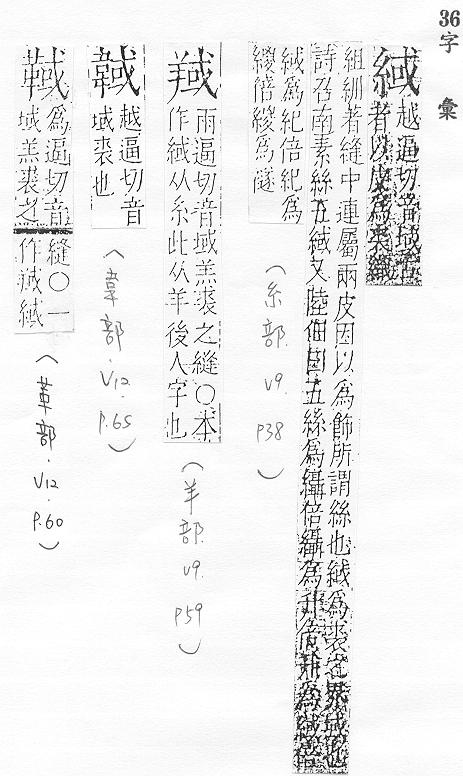 36 字彙
緎
越逼切音域古
者以皮為裘緎
組紃者縫中連屬兩皮因以為飾所謂絲也緎為裘之界域
詩召南素絲五緎又陸佃曰五絲為䌰倍䌰為升倍升為緎倍
緎為紀倍紀為
緵倍緵為襚
(糸部. V9. P38)
羬
雨逼切音域羔裘之縫○本
作緎从糸此从羊後人字也
(羊部. V9. P59)
韯
越逼切音
域裘也
(韋部. V12. P.65)
䩹
為逼切音
域羔裘之
縫○一
作𩋃緎
(革部. V12. P.60)